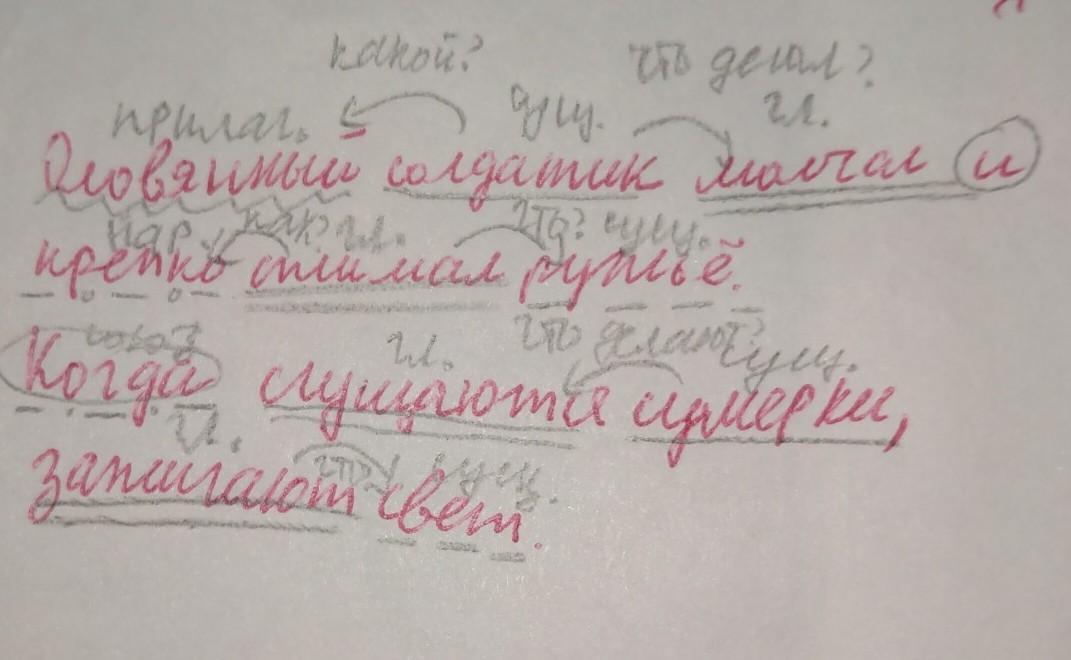 какой? что делал?
прилаг. сущ. гл.
Оловянный солдатик молчал и
нар. как? гл. что? сущ.
крепко сжимал ружьё.
союз гл. что делают? сущ.
Когда сгущаются сумерки,
гл. что? сущ.
зажигают свет.